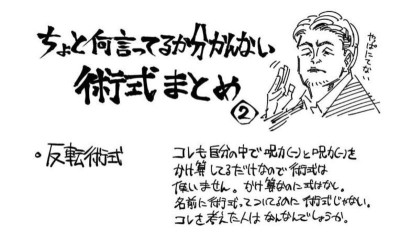 ちょと何言ってるか分かんない
術式まとめ
②
やばにてない
・反転術式
コレも自分の中で呪力(-)と呪力(-)を
かけ算してるだけなので術式は
使いません。かけ算なのに式はなし。
名前に術式ってついてるのに術式じゃない。
コレを考えた人はなんなんでしょうか。